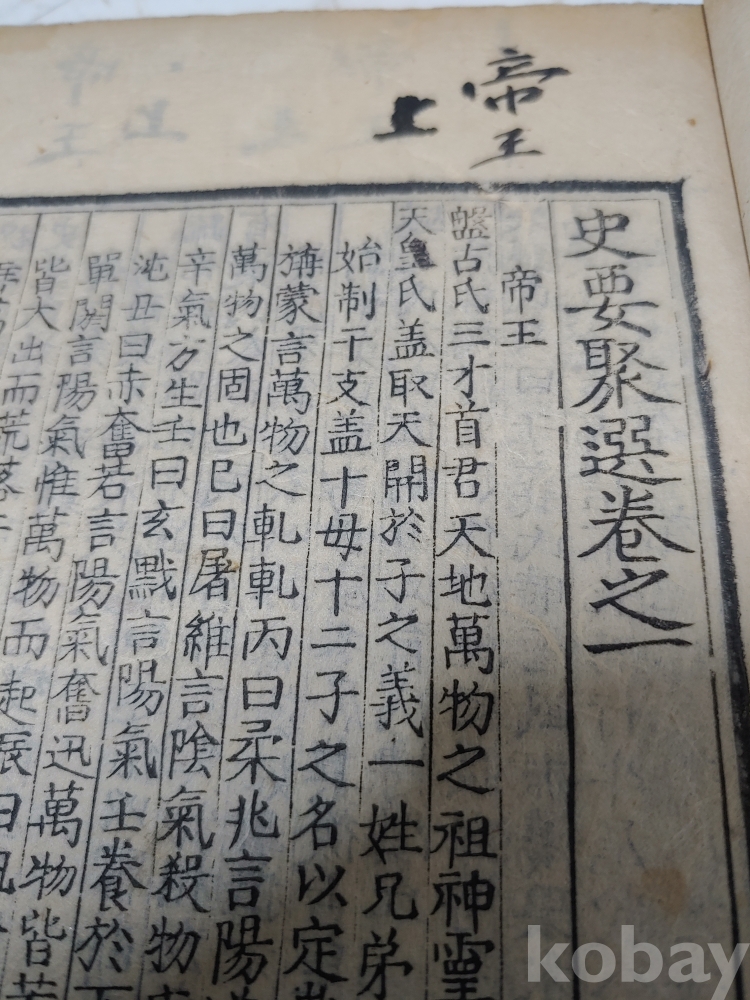 帝王
上
史要聚選卷之一
帝王
盤古氏三才首君天地萬物之祖神靈
天皇氏盖取天開於子之義一姓兄弟
始制干支盖十母十二子之名以定
旃蒙言萬物之軋軋丙曰柔兆言陽
萬物之固也已曰屠維言陰氣殺物
辛氣方生壬曰玄黓言陽氣壬養於
沌丑曰赤奮若言陽氣奮迅萬物皆
單閼言陽氣惟萬物而起辰曰
皆大出而荒落
kobay